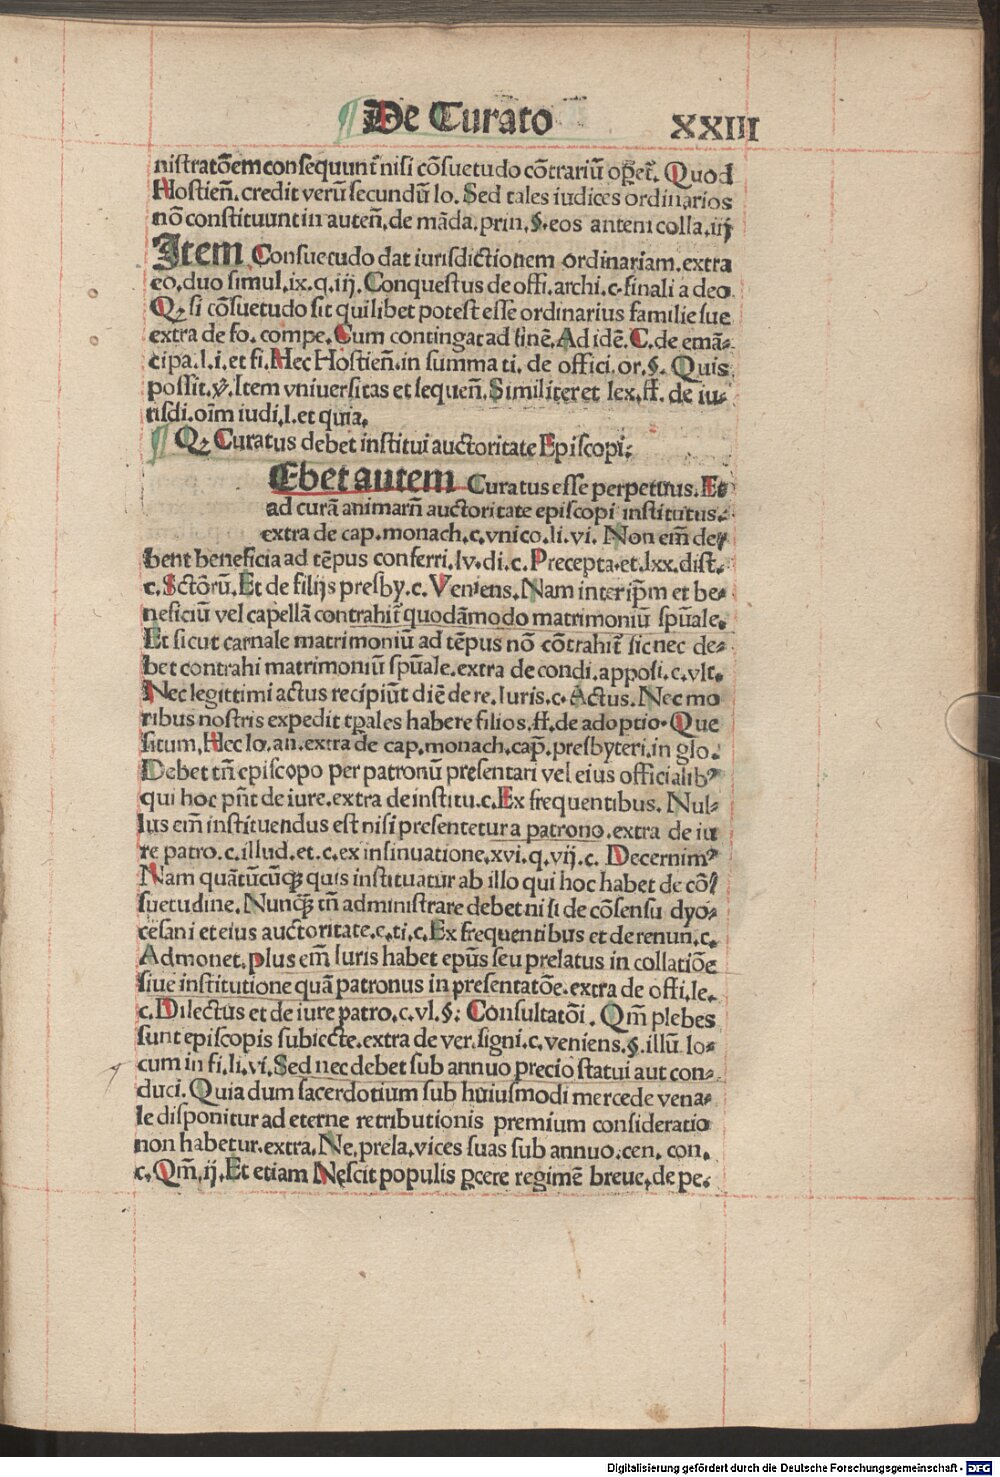 ¶ De Curato XXIIII
nistratōem consequunt̄ nisi cōsuetudo cōtrariū oꝑet̄. Quod
Hostien̄. credit verū secundū Io. Sed tales iudices ordinarios
nō constituunt in auten̄. de māda. prin. §. eos antem colla. iij
Item Consuetudo dat iurisdictionem ordinariam. extra
eo. duo simul. ix. q. iij. Conquestus de offi. archi. c. finali a deo
Qꝫ si cōsuetudo sit quilibet potest esse ordinarius familie sue
extra de fo. compe. Cum contingat ad finē. Ad idē. C. de emā⸗
cipa. l. i. et fi. Hec Hostien̄. in summa ti. de offici. or. §. Quis
possit. ℣. Item vniuersitas et sequen̄. Similiter et lex. ff. de iu⸗
risdi. oīm iudi. l. et quia.
¶ Qꝫ Curatus debet institui auctoritate Episcopi:
Ebet autem Curatus esse perpetuus. Et
ad curā animarū auctoritate episcopi institutus.
extra de cap. monach. c. vnico. li. vi. Non em̄ de⸗
bent beneficia ad tēpus conferri. lv. di. c. Precepta. et. lxx. dist.
c. Sctōrū. Et de filijs presby. c. Veniens. Nam inter ip̄m et be⸗
neficiū vel capellā contrahit̄ quodāmodo matrimoniū sp̄uale.
Et sicut carnale matrimoniū ad tēpus nō cōtrahit̄ sic nec de⸗
bet contrahi matrimoniū sp̄uale. extra de condi. apposi. c. vlt.
Nec legittimi actus recipiūt diē de re. Iuris. c. Actus. Nec mo
ribus nostris expedit tꝑales habere filios. ff. de adoptio. Que
situm. Hec Io. an. extra de cap. monach. cap̄. presbyteri. in glo.
Debet tn̄ episcopo per patronū presentari vel eius officialibꝰ
qui hoc pn̄t de iure. extra de institu. c. Ex frequentibus. Nul⸗
lus em̄ instituendus est nisi presentetur a patrono. extra de iu
re patro. c. illud. et. c. ex insinuatione. xvi. q. vij. c. Decernimꝰ
Nam quātūcūqꝫ quis instituatur ab illo qui hoc habet de cō⸗
suetudine. Nunqꝫ tn̄ administrare debet nisi de cōsensu dyo⸗
cesani et eius auctoritate. e. ti. c. Ex frequentibus et de renun. c.
Admonet. plus em̄ Iuris habet epūs seu prelatus in collatiōe
siue institutione quā patronus in presentatōe. extra de offi. le.
c. Dilectus et de iure patro. c. vl. §. Consultatōi. Qm̄ plebes
sunt episcopis subiecte. extra de ver. signi. c. veniens. §. illū lo⸗
cum in fi. li. vi. Sed nec debet sub annuo precio statui aut con⸗
duci. Quia dum sacerdotium sub huiusmodi mercede vena⸗
le disponitur ad eterne retributionis premium consideratio
non habetur. extra. Ne. prela. vices suas sub annuo. cen. con.
c. Qm̄. ij. Et etiam Nescit populis ꝑcere regimē breue. de pe.
Digitalisierung gefördert durch die Deutsche Forschungsgemeinschaft - DFG